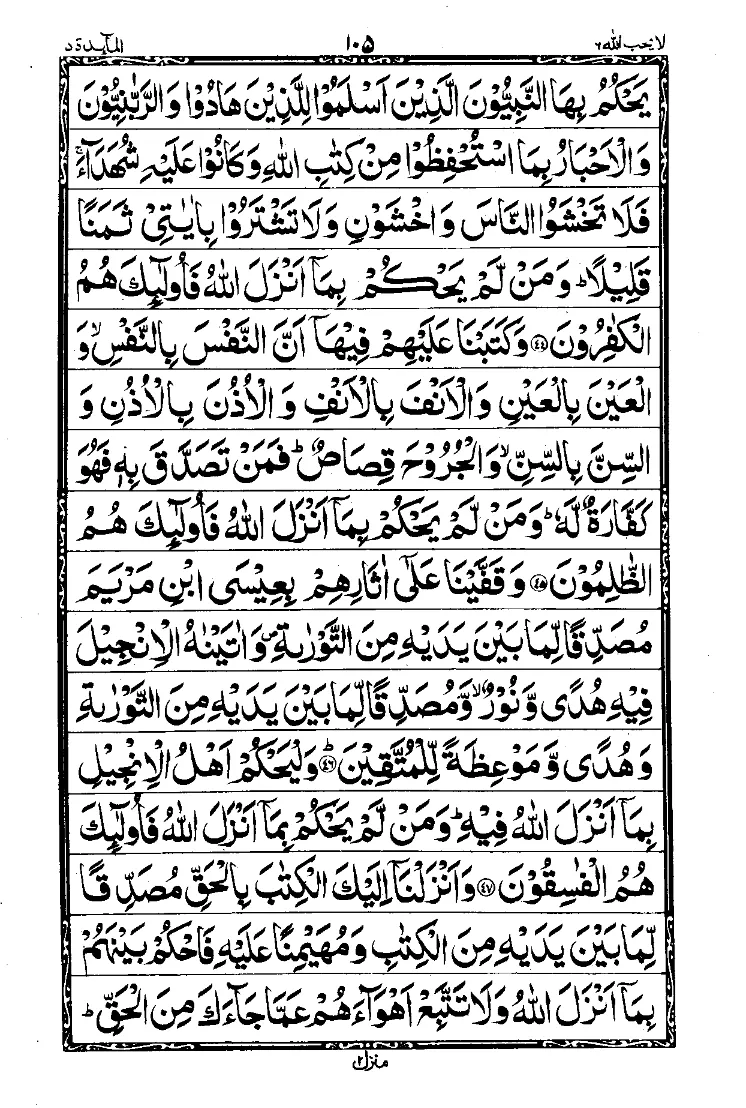 لا یحب الله ۶ ۱۰۵ المآئدة ۵
یَحْكُمُ بِهَا النَّبِیُّوْنَ الَّذِیْنَ اَسْلَمُوْا لِلَّذِیْنَ هَادُوْا وَ الرَّبّٰنِیُّوْنَ
وَ الْاَحْبَارُ بِمَا اسْتُحْفِظُوْا مِنْ كِتٰبِ اللّٰهِ وَ كَانُوْا عَلَیْهِ شُهَدَآءَ ۚ
فَلَا تَخْشَوُا النَّاسَ وَ اخْشَوْنِ وَ لَا تَشْتَرُوْا بِاٰیٰتِیْ ثَمَنًا
قَلِیْلًا ؕ وَ مَنْ لَّمْ یَحْكُمْ بِمَاۤ اَنْزَلَ اللّٰهُ فَاُولٰٓىِٕكَ هُمُ
الْكٰفِرُوْنَ ﴿۴۴﴾ وَ كَتَبْنَا عَلَیْهِمْ فِیْهَاۤ اَنَّ النَّفْسَ بِالنَّفْسِ ۙ وَ
الْعَیْنَ بِالْعَیْنِ وَ الْاَنْفَ بِالْاَنْفِ وَ الْاُذُنَ بِالْاُذُنِ وَ
السِّنَّ بِالسِّنِّ ۙ وَ الْجُرُوْحَ قِصَاصٌ ؕ فَمَنْ تَصَدَّقَ بِهٖ فَهُوَ
كَفَّارَةٌ لَّهٗ ؕ وَ مَنْ لَّمْ یَحْكُمْ بِمَاۤ اَنْزَلَ اللّٰهُ فَاُولٰٓىِٕكَ هُمُ
الظّٰلِمُوْنَ ﴿۴۵﴾ وَ قَفَّیْنَا عَلٰۤی اٰثَارِهِمْ بِعِیْسَی ابْنِ مَرْیَمَ
مُصَدِّقًا لِّمَا بَیْنَ یَدَیْهِ مِنَ التَّوْرٰىةِ ۪ وَ اٰتَیْنٰهُ الْاِنْجِیْلَ
فِیْهِ هُدًی وَّ نُوْرٌ ۙ وَّ مُصَدِّقًا لِّمَا بَیْنَ یَدَیْهِ مِنَ التَّوْرٰىةِ
وَ هُدًی وَّ مَوْعِظَةً لِّلْمُتَّقِیْنَ ﴿۴۶﴾ؕ وَ لْیَحْكُمْ اَهْلُ الْاِنْجِیْلِ
بِمَاۤ اَنْزَلَ اللّٰهُ فِیْهِ ؕ وَ مَنْ لَّمْ یَحْكُمْ بِمَاۤ اَنْزَلَ اللّٰهُ فَاُولٰٓىِٕكَ
هُمُ الْفٰسِقُوْنَ ﴿۴۷﴾ وَ اَنْزَلْنَاۤ اِلَیْكَ الْكِتٰبَ بِالْحَقِّ مُصَدِّقًا
لِّمَا بَیْنَ یَدَیْهِ مِنَ الْكِتٰبِ وَ مُهَیْمِنًا عَلَیْهِ فَاحْكُمْ بَیْنَهُمْ
بِمَاۤ اَنْزَلَ اللّٰهُ وَ لَا تَتَّبِعْ اَهْوَآءَهُمْ عَمَّا جَآءَكَ مِنَ الْحَقِّ ؕ
منزل ۲